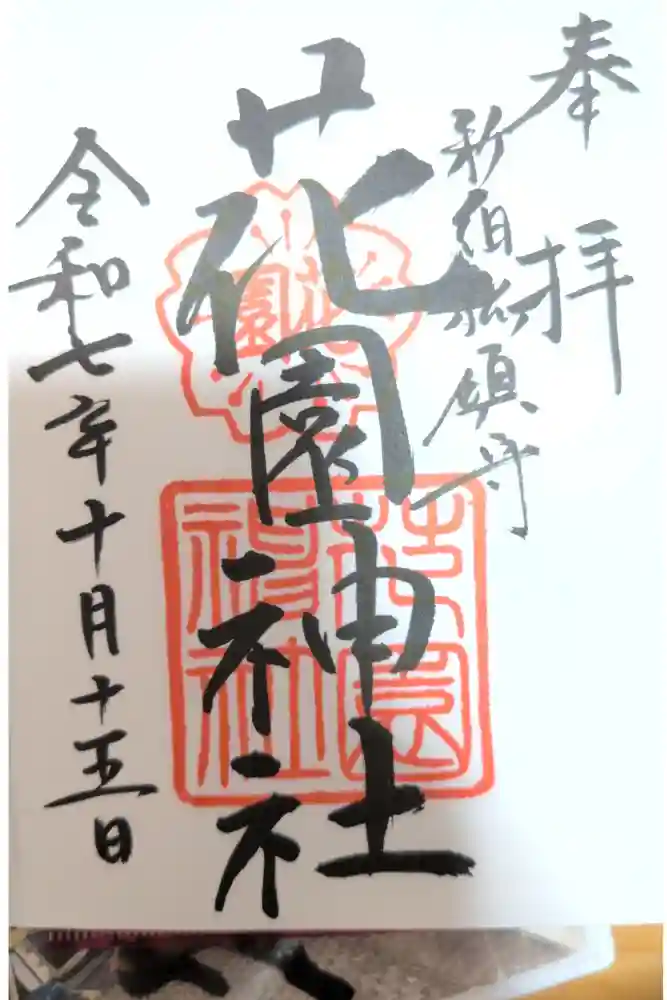 奉拝
新宿総鎮守
花園神社
花園
花園神社
令和七年十月十五日